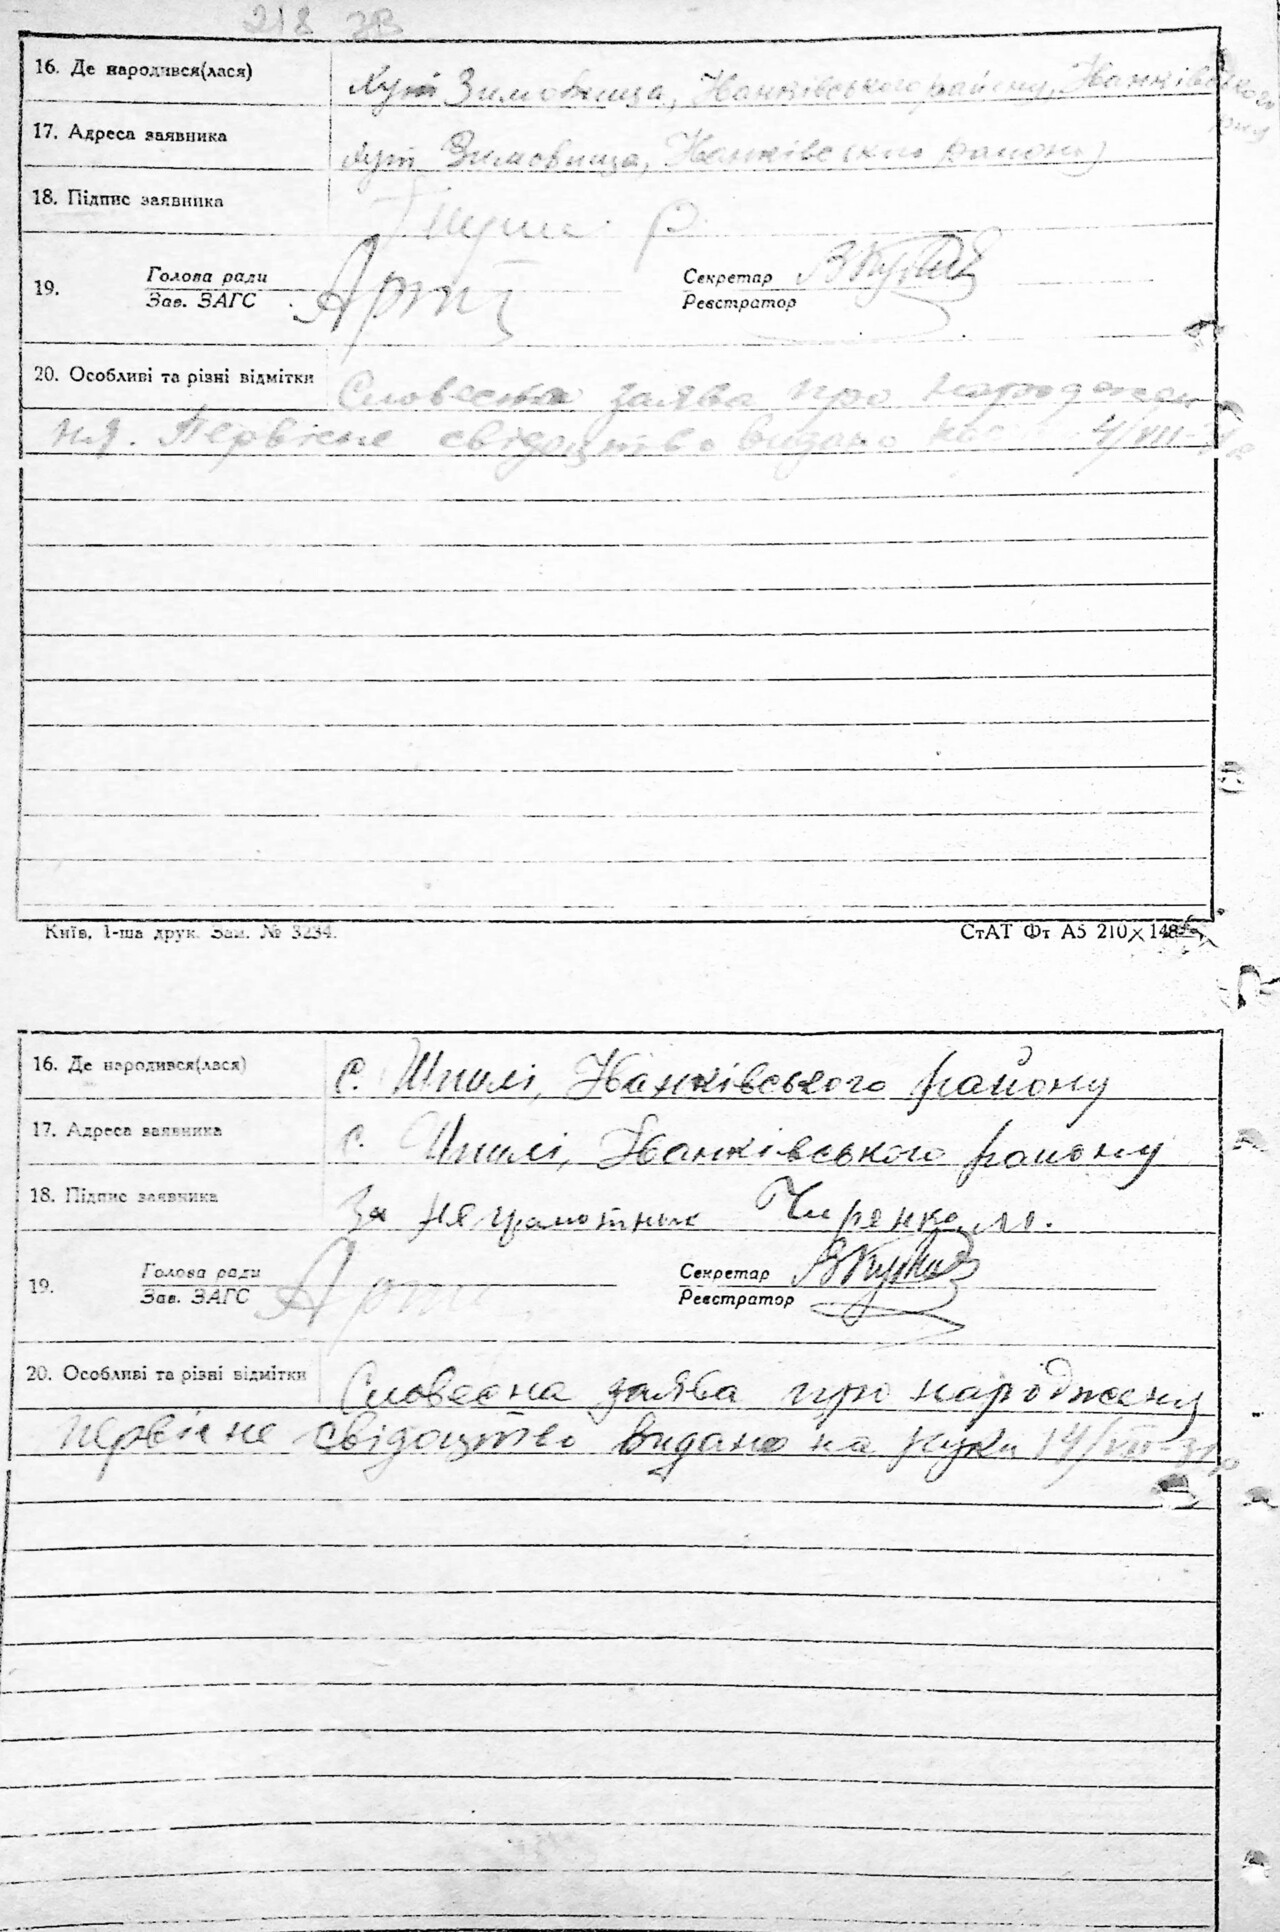 218 зв
16. Де народився(лася) Хут Зимовища, Іванківського району, Іванківського
р-ну
17. Адреса заявника Хут Зимовища, Іванківського району
18. Підпис заявника
19. Голова ради Секретар
Зав. ЗАГС Реєстратор
20. Особливі та різні відмітки Словесна заява про народжен
ня. Первісне свідоцтво видано 4/VII-
Київ, 1-ша друк. Зам. № 3234. СтАТ Фт А5 210×148
16. Де народився(лася) с. Шпилі, Іванківського району
17. Адреса заявника с. Шпилі, Іванківського району
18. Підпис заявника За неграмотних
19. Голова ради Секретар
Зав. ЗАГС Реєстратор
20. Особливі та різні відмітки Словесна заява про народжени
первісне свідоцтво видано на руки 14/VII-31р